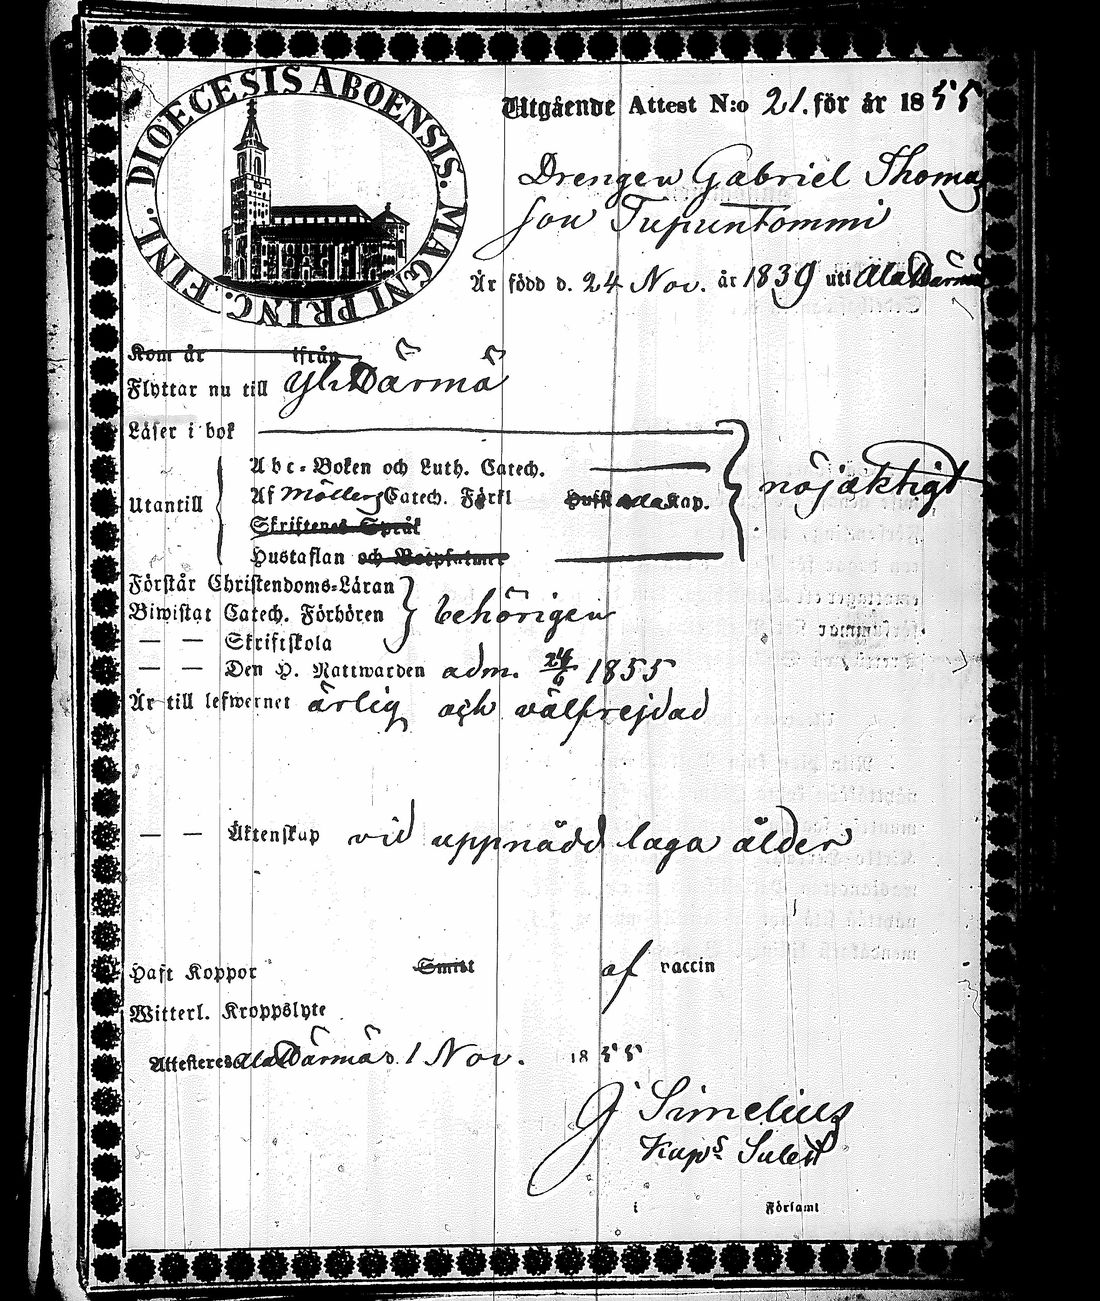 DIOECESIS ABOENSIS. MAGNI PRINC. FINL.
Utgående Attest N:o 21. för år 1855
Drengen Gabriel Thomas
son Tupuntommi
Är född d. 24 Nov. år 1839 uti Ala Därmä
Kom år ifrån
Flyttar nu till Yli Därmä
Läser i bok
Utantill
Abc-Boken och Luth. Catech.
Af Möllers Catech. Förkl Hufst alla Kap. nöjaktigt
Skriftenes Språk
Hustaflan och Botpsalmer
Förstår Christendoms-Läran
Biwistat Catech. Förhören behörigen
— — Skriftskola
— — Den H. Nattwarden adm. 24/6 1855
Är till lefwernet ärlig och välfrejdad
— — Äktenskap vid uppnådd laga ålder
Haft Koppor Smitt af vaccin
Witterl. Kroppslyte
Attesteres Ala Därmä d. 1 Nov. 1855
G Simelius
Kaps
i Församl